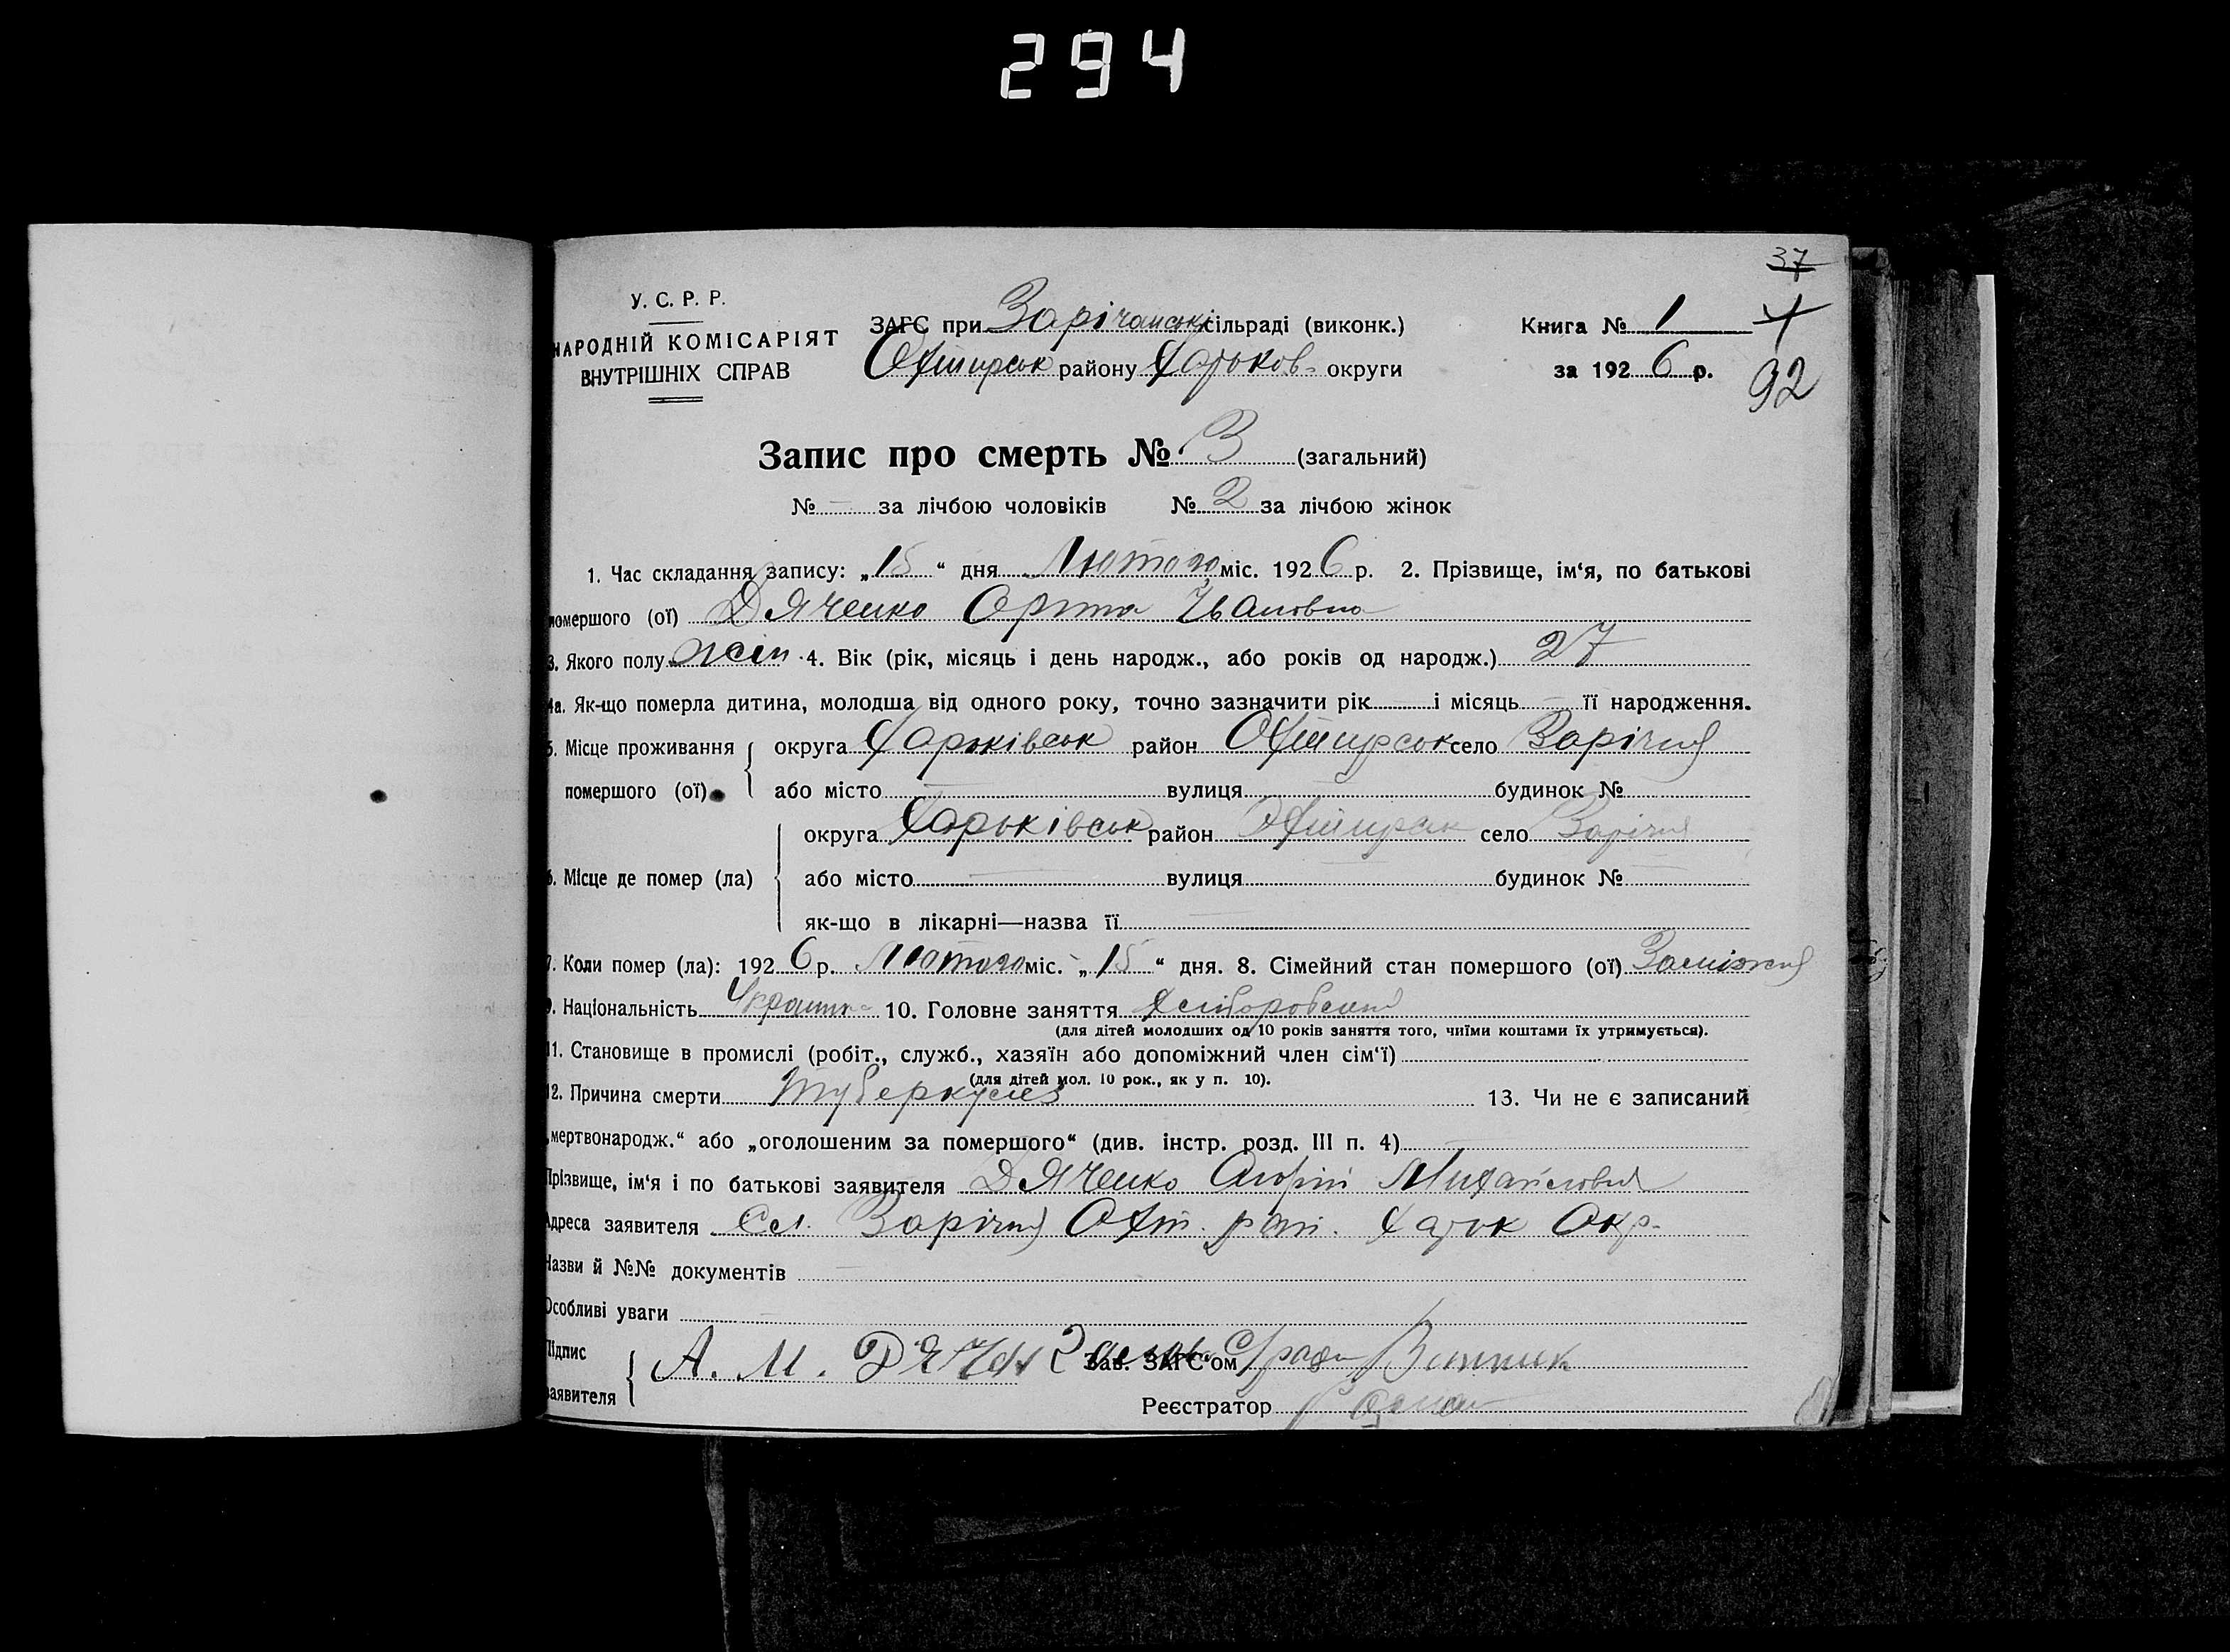 294
37
У. С. Р. Р.
НАРОДНІЙ КОМІСАРІЯТ
ВНУТРІШНІХ СПРАВ
ЗАГС при Зарічанськ сільраді (виконк.)
Охтирськ району Харьков- округи
Книга № 1
за 1926 р.
92
Запис про смерть № 3 (загальний)
№ — за лічбою чоловіків № 2 за лічбою жінок
1. Час складання запису: „15“ дня Лютого міс. 1926 р. 2. Прізвище, ім‘я, по батькові
помершого (ої) Дяченко Орина Ивановна
3. Якого полу жін 4. Вік (рік, місяць і день народж., або років од народж.) 27
4а. Як-що померла дитина, молодша від одного року, точно зазначити рік — і місяць — її народження.
5. Місце проживання округа Харьківськ район Охтирськ село Заріччя
помершого (ої) або місто — вулиця — будинок № —
округа Харьківськ район Охтирськ село Заріччя
6. Місце де помер (ла) або місто — вулиця — будинок № —
як-що в лікарні—назва її —
7. Коли помер (ла): 1926 р. Лютого міс. „15“ дня. 8. Сімейний стан помершого (ої) Заміжня
9. Національність Украинка 10. Головне заняття Хліборобська
(для дітей молодших од 10 років заняття того, чиїми коштами їх утримується).
11. Становище в промислі (робіт., служб., хазяїн або допоміжний член сім‘ї)
(для дітей мол. 10 рок., як у п. 10).
12. Причина смерти Туберкулез 13. Чи не є записаний
„мертвонародж.“ або „оголошеним за помершого“ (див. інстр. розд. III п. 4) —
Прізвище, ім‘я і по батькові заявителя Дяченко Михайлович
Адреса заявителя Сел. Заріччя Охт. рай. Харк Окр.
Назви й №№ документів —
Особливі уваги —
Підпис
заявителя
А. М. Зав. ЗАГС‘ом
Реєстратор